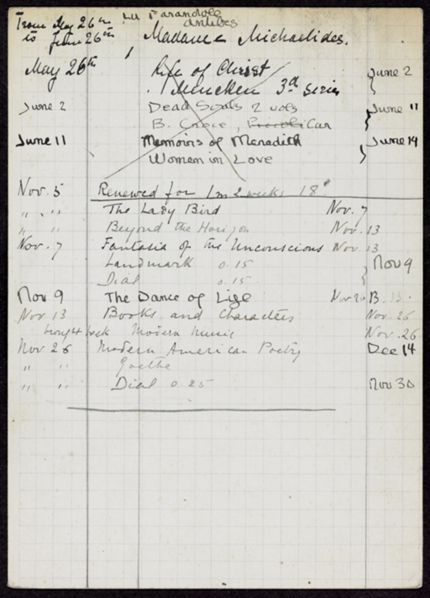 From May 26th La Farandole
to June 26th Antibes
Madame Michaelides.
May 26th Life of Christ June 2
Mencken 3rd series
June 2 Dead Souls 2 vols June 11
B. Croce,
June 11 Memoirs of Meredith June 19
Women in Love
Nov. 5 Renewed for 1m 2 weeks 18
" " " The Lady Bird Nov. 7
" " Beyond the Horizon Nov. 13
Nov. 7 Fantasia of the Unconscious Nov. 13
Landmark 0.15 Nov 9
Dial 0.15
Nov 9 The Dance of Life
Nov 13 Books and Characters Nov. 26
bought back Modern Music Nov. 26
Nov 26 Modern American Poetry Dec 14
" " Goethe
" " Dial 0.25 Nov 30